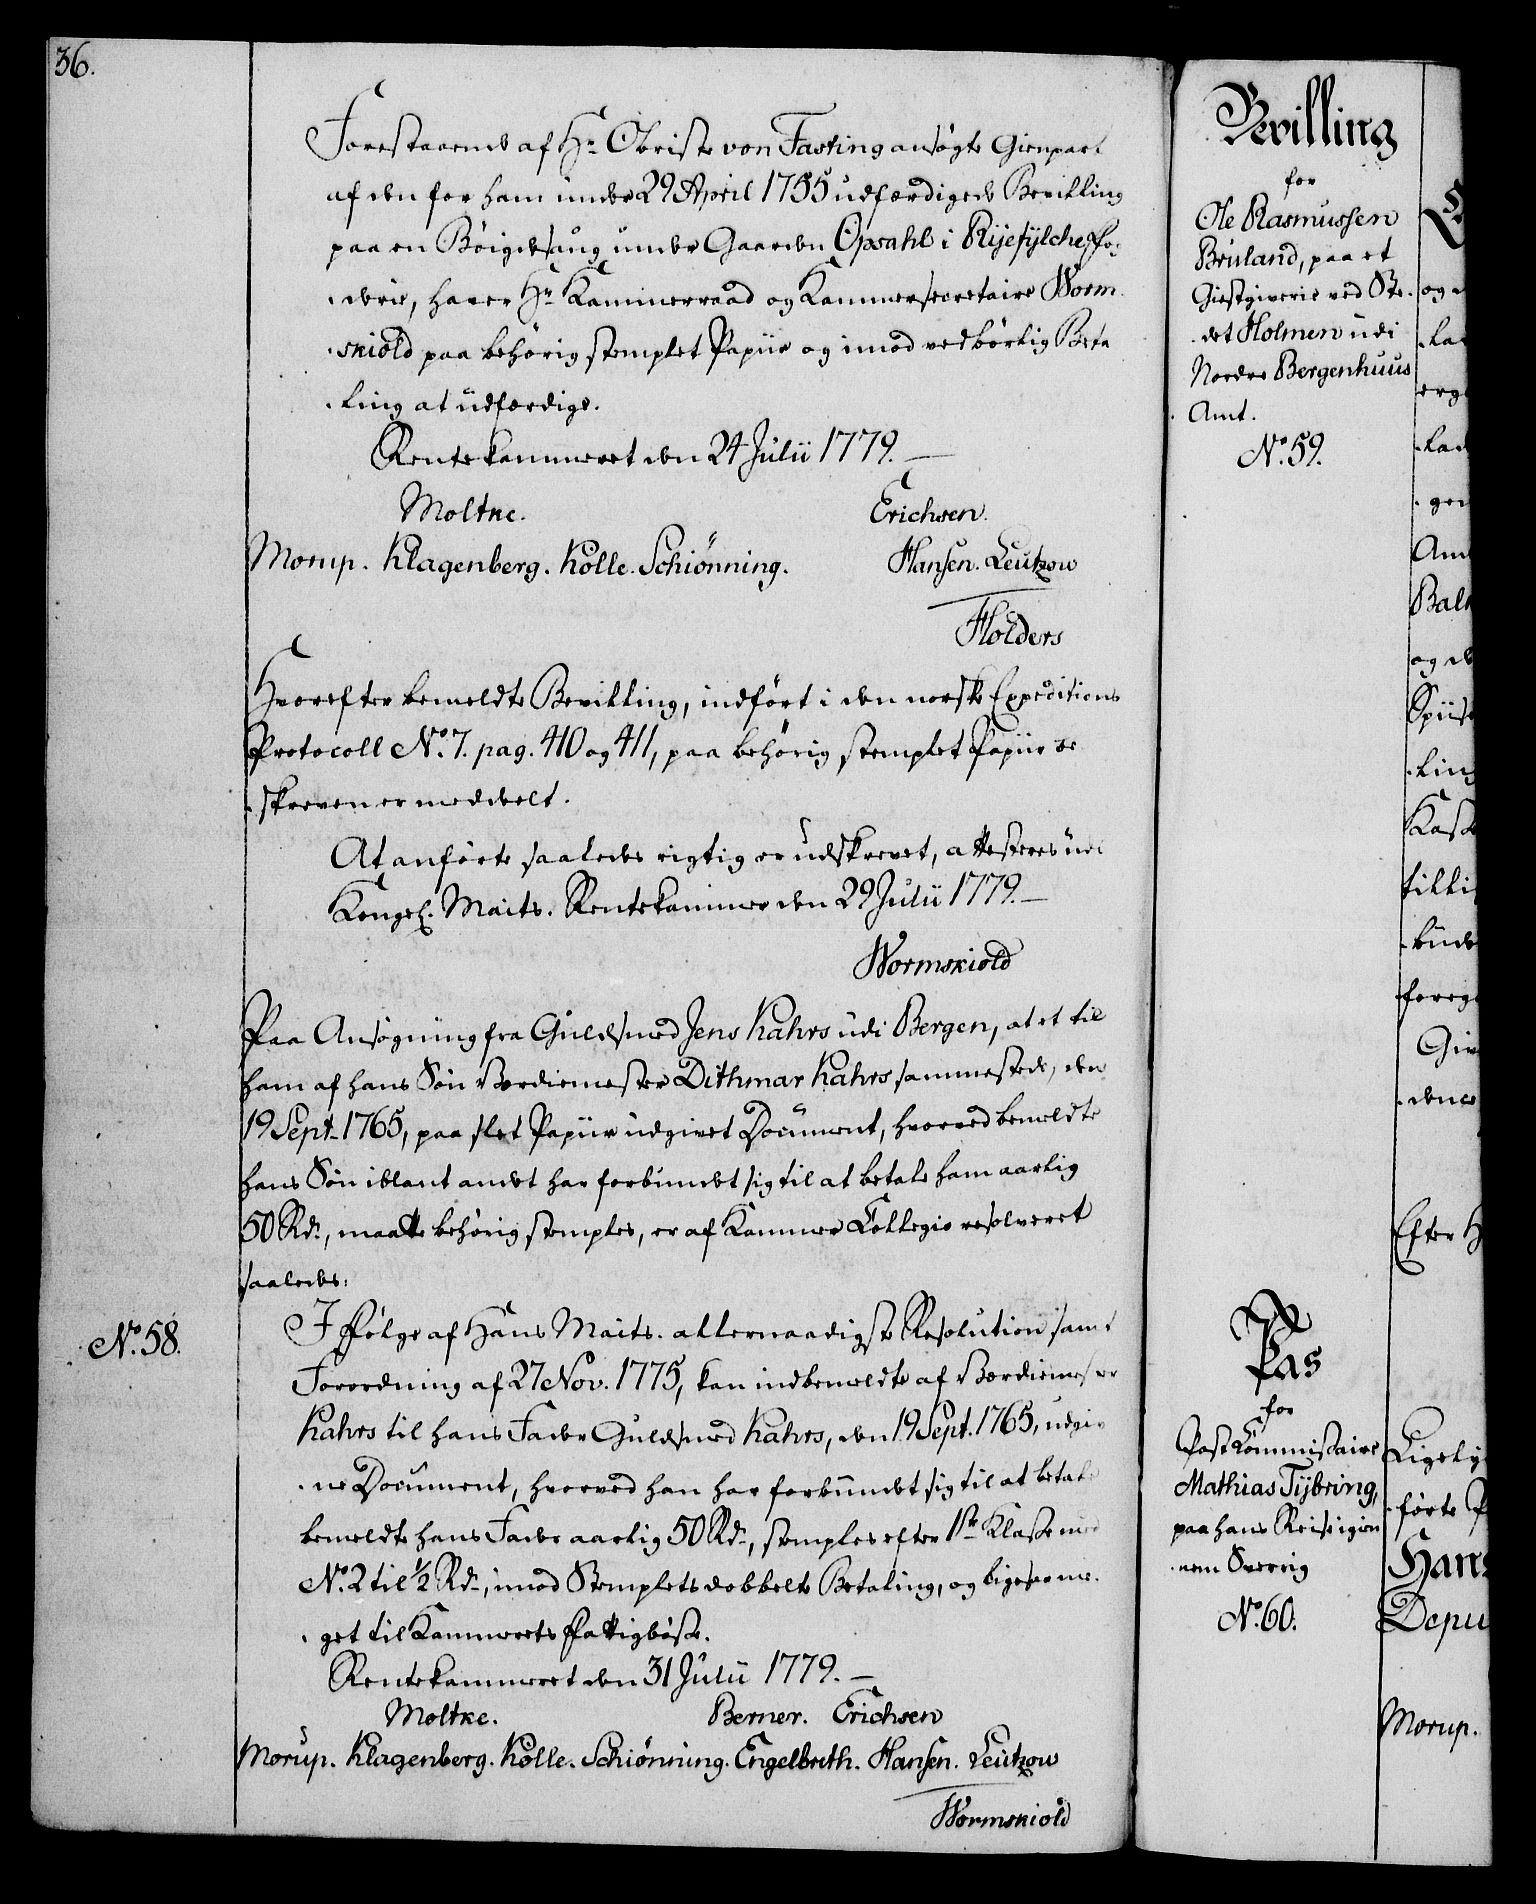 36.
Forestaaende af Hr. Obriste von Fasting ansøgte Gienpart
af den for ham under 29 April 1755 udfærdigede Bevilling
paa en Bøigdesaug under Gaarden Opsahl i Ryefylche Fog-
-derie, haver Hr. Kammerraad og Kammersecretaire Worm-
-skiold paa behørig stemplet Papiir og imod vedbørlig Beta
-ling at udfærdige.
Rentekammeret den 24 Julii 1779.
Moltke. Erichsen.
Morup. Klagenberg. Kølle. Schiønning. Hansen. Leutzow
Holders
Hvorefter bemeldte Bevilling, indført i den norske Expeditions
Protocoll No. 7. pag. 410 og 411, paa behørig stemplet Papiir be
-skreven er meddelt.
At anførte saaledes rigtig er udskrevet, attesteres udi
Kongel. Maits. Rentekammer den 29 Julii 1779.
Wormskiold
Paa Ansøgning fra Guldsmed Jens Kahrs udi Bergen, at et til
ham af hans Søn Værdiemester Dithmar Kahrs sammesteds, den
19 Sept. 1765, paa slet Papiir udgivet Document, hvorved bemeldte
hans Søn iblant andet har forbundet sig til at betale ham aarlig
50 Rd., maatte behørig stemples, er af Kammer Collegio resolveret
saaledes:
No. 58.
I Følge af Hans Maits. allernaadigste Resolution samt
Forordning af 27 Nov. 1775, kan indbemeldte af Værdiemester
Kahrs til hans Fader Guldsmed Kahrs, den 19 Sept. 1765, udgiv
-ne Document, hvorved han har forbundet sig til at betale
bemeldte hans Fader aarlig 50 Rd., stemples efter 1ste Klasse med
No. 2 til 1/2 Rd., imod Stemplets dobbelte Betaling, og ligesaame-
-get til Kammerets Fattigbøsse.
Rentekammeret den 31 Julii 1779.
Moltke. Berner. Erichsen
Morup. Klagenberg. Kølle. Schiønning. Engelbreth. Hansen. Leutzow
Wormskiold
Bevilling
for
Ole Rasmussen
Bruland, paa et
Giestgiverie ved Ste-
-det Holmen udi
Nordre Bergenhuus
Amt.
No. 59.
Pas
for
Post Commissaire
Mathias Tybring,
paa hans Reise igien
-nem Sverrig
No. 60.
og
Am
Bal
og
Spiise
-ling
Kaste
tilli
foreg
Efter H
Ligely
førte P
Hans
Depu
Morup.